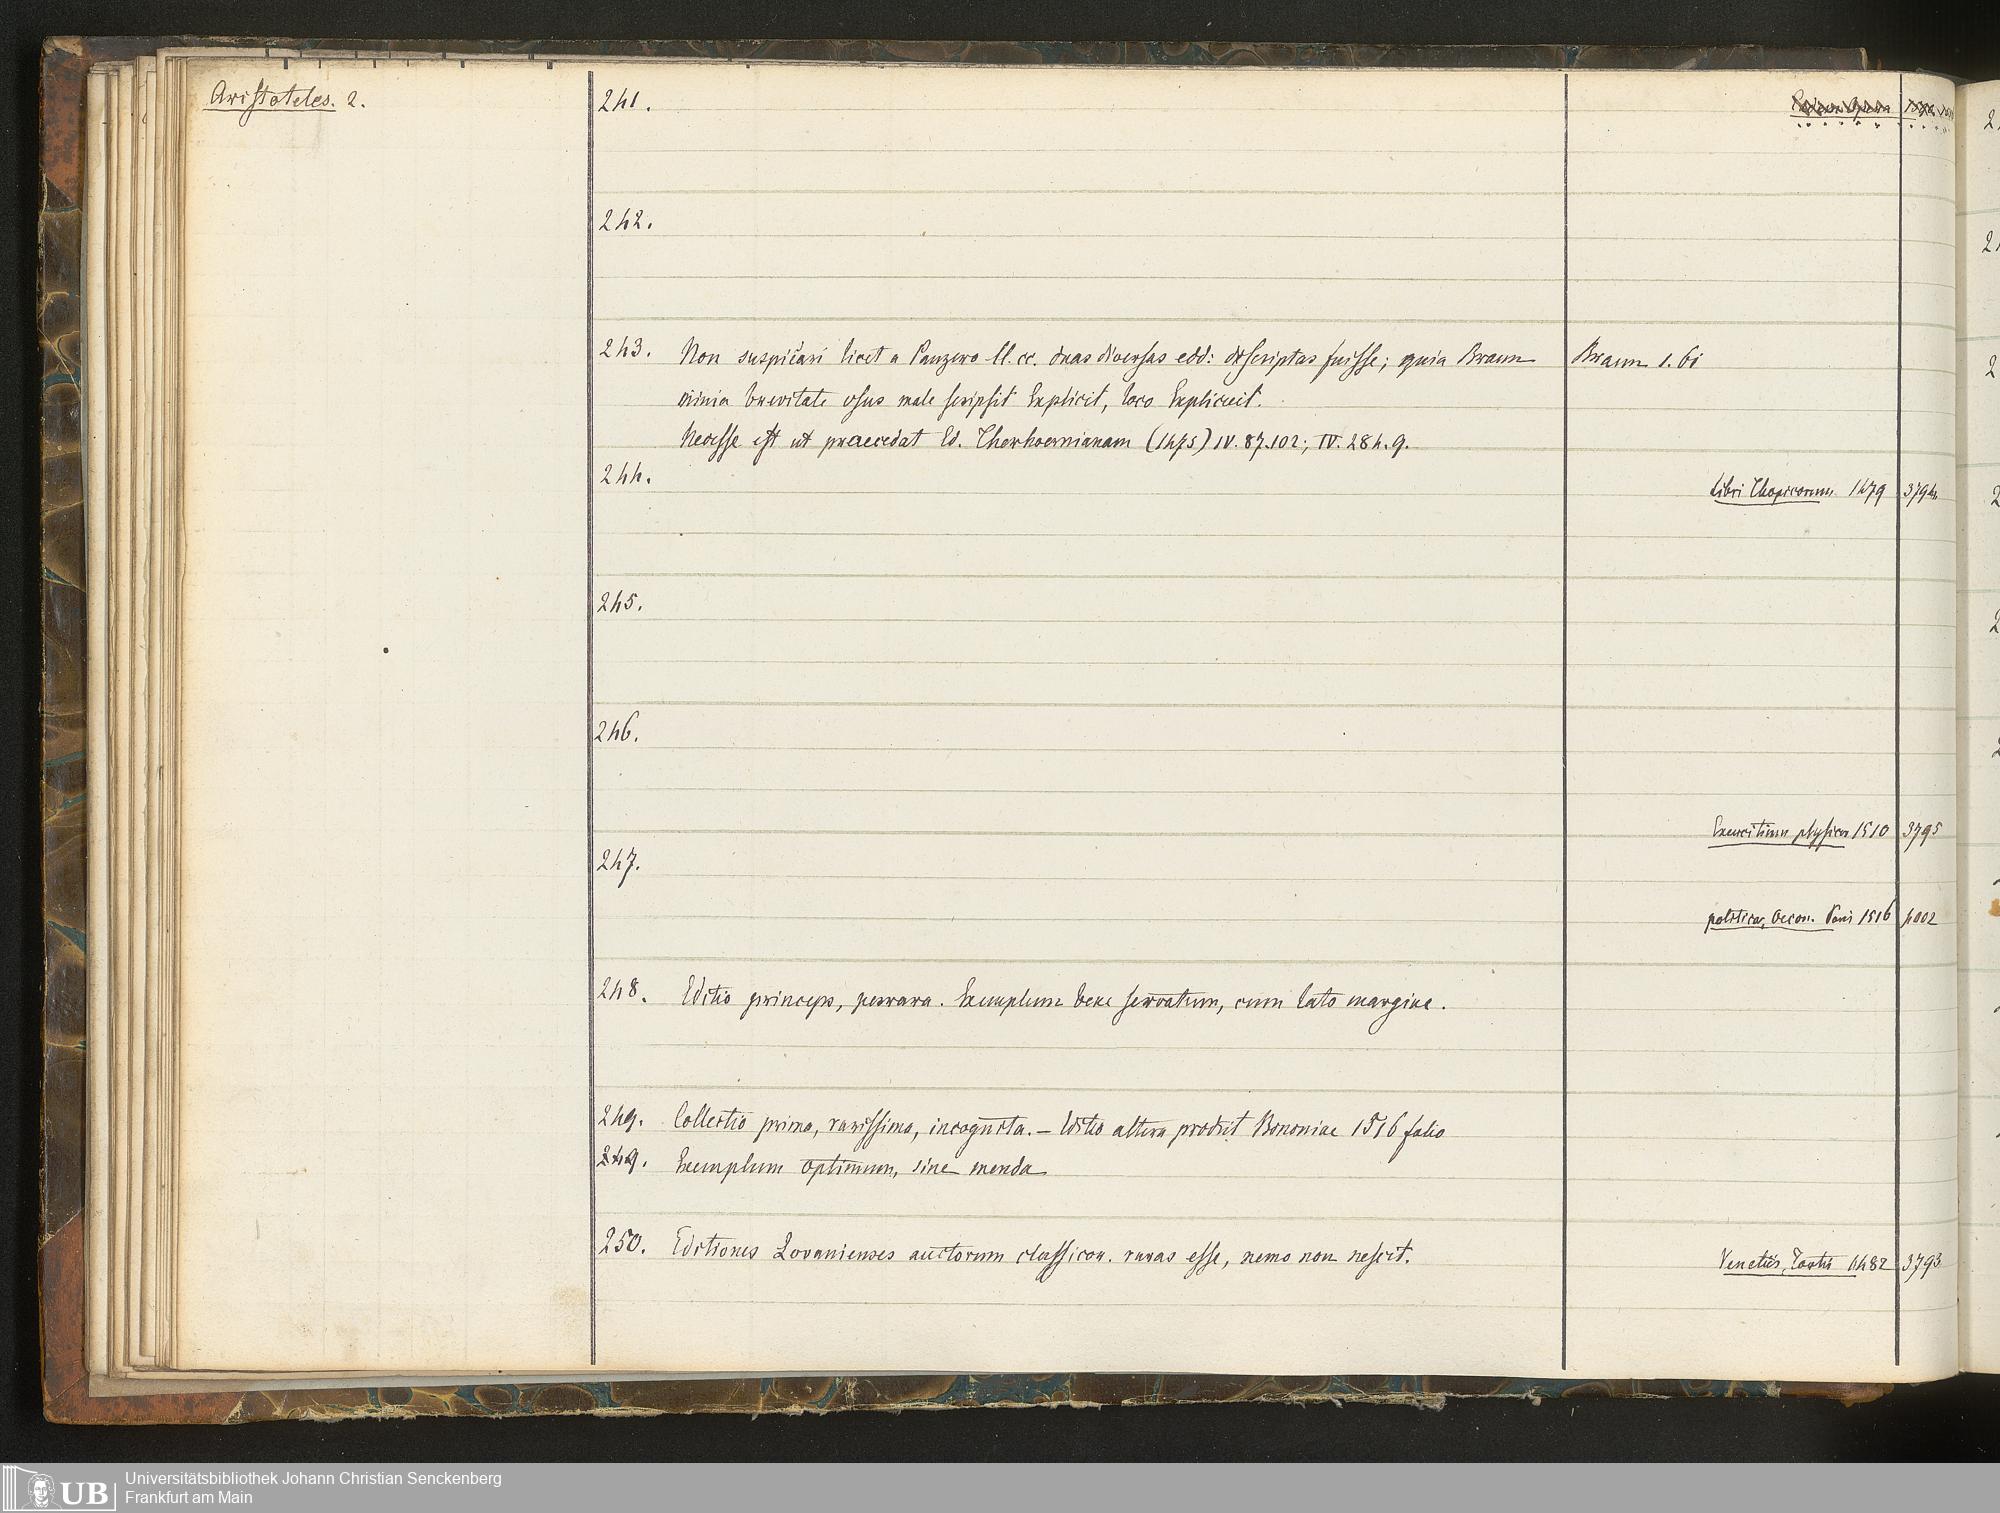 Aristoteles. 2.
241.
242.
243. Non suspicari licet a Panzero ll. cc. duas diversas edd: descriptas fuisse; quia Braun
Braun 1. 61
nimia brevitate usus male scripsit Explicit, loco Explicuit.
Necesse est ut praecedat Ed. Therhoernianam (1475) IV. 87.102; IV. 284. 9.
244.
Libri Thopicorum 1479 3794
245.
246.
Exercitium physicor 1510 3795
247.
politicor, Oecon. Paris 1516 4002
248. Editio princeps, perrara. Exemplum bene servatum, cum lato margine.
249. Collectio prima, rarissima, incognita. – Editio altera prodiit Bononiae 1516 folio
249. Exemplum optimum, sine menda
250. Editiones Lovanienses auctorum classicor. raras esse, nemo non nescit.
Venetiis, Tortis 1482 3793
Universitätsbibliothek Johann Christian Senckenberg
Frankfurt am Main
UB